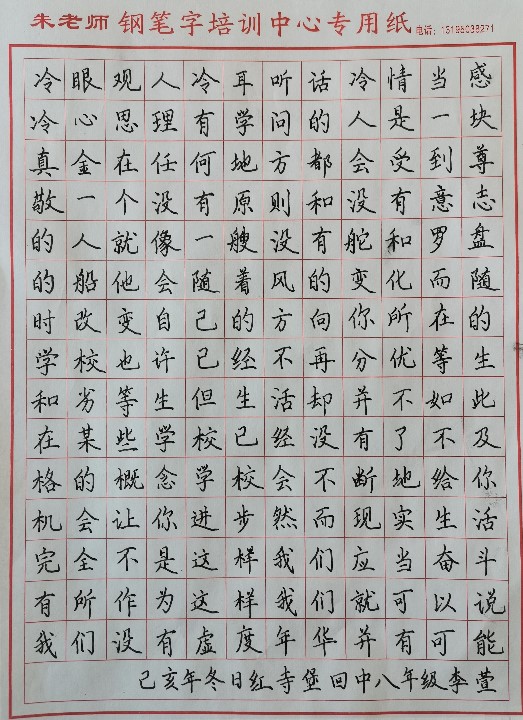 朱老师 钢笔字培训中心专用纸 电话：13195038271
冷眼观人冷耳听话冷情当感
冷心思理有学问的人是一块
真金在任何地方都会受到尊
敬一个没有原则和没有意志
的人就像一艘没有舵和罗盘
的船他会随着风的变化而随
时改变自己的方向你所在的
学校也许已经不再分优等生
和劣等生但生活却并不如此
在某些学校已经没有了不及
格的概念学校会不断地给你
机会让你进步然而现实生活
完全不是这样我们应当奋斗
有所作为这样我们就可以说
我们没有虚度年华并有可能
己亥年冬日红寺堡回中八年级李萱